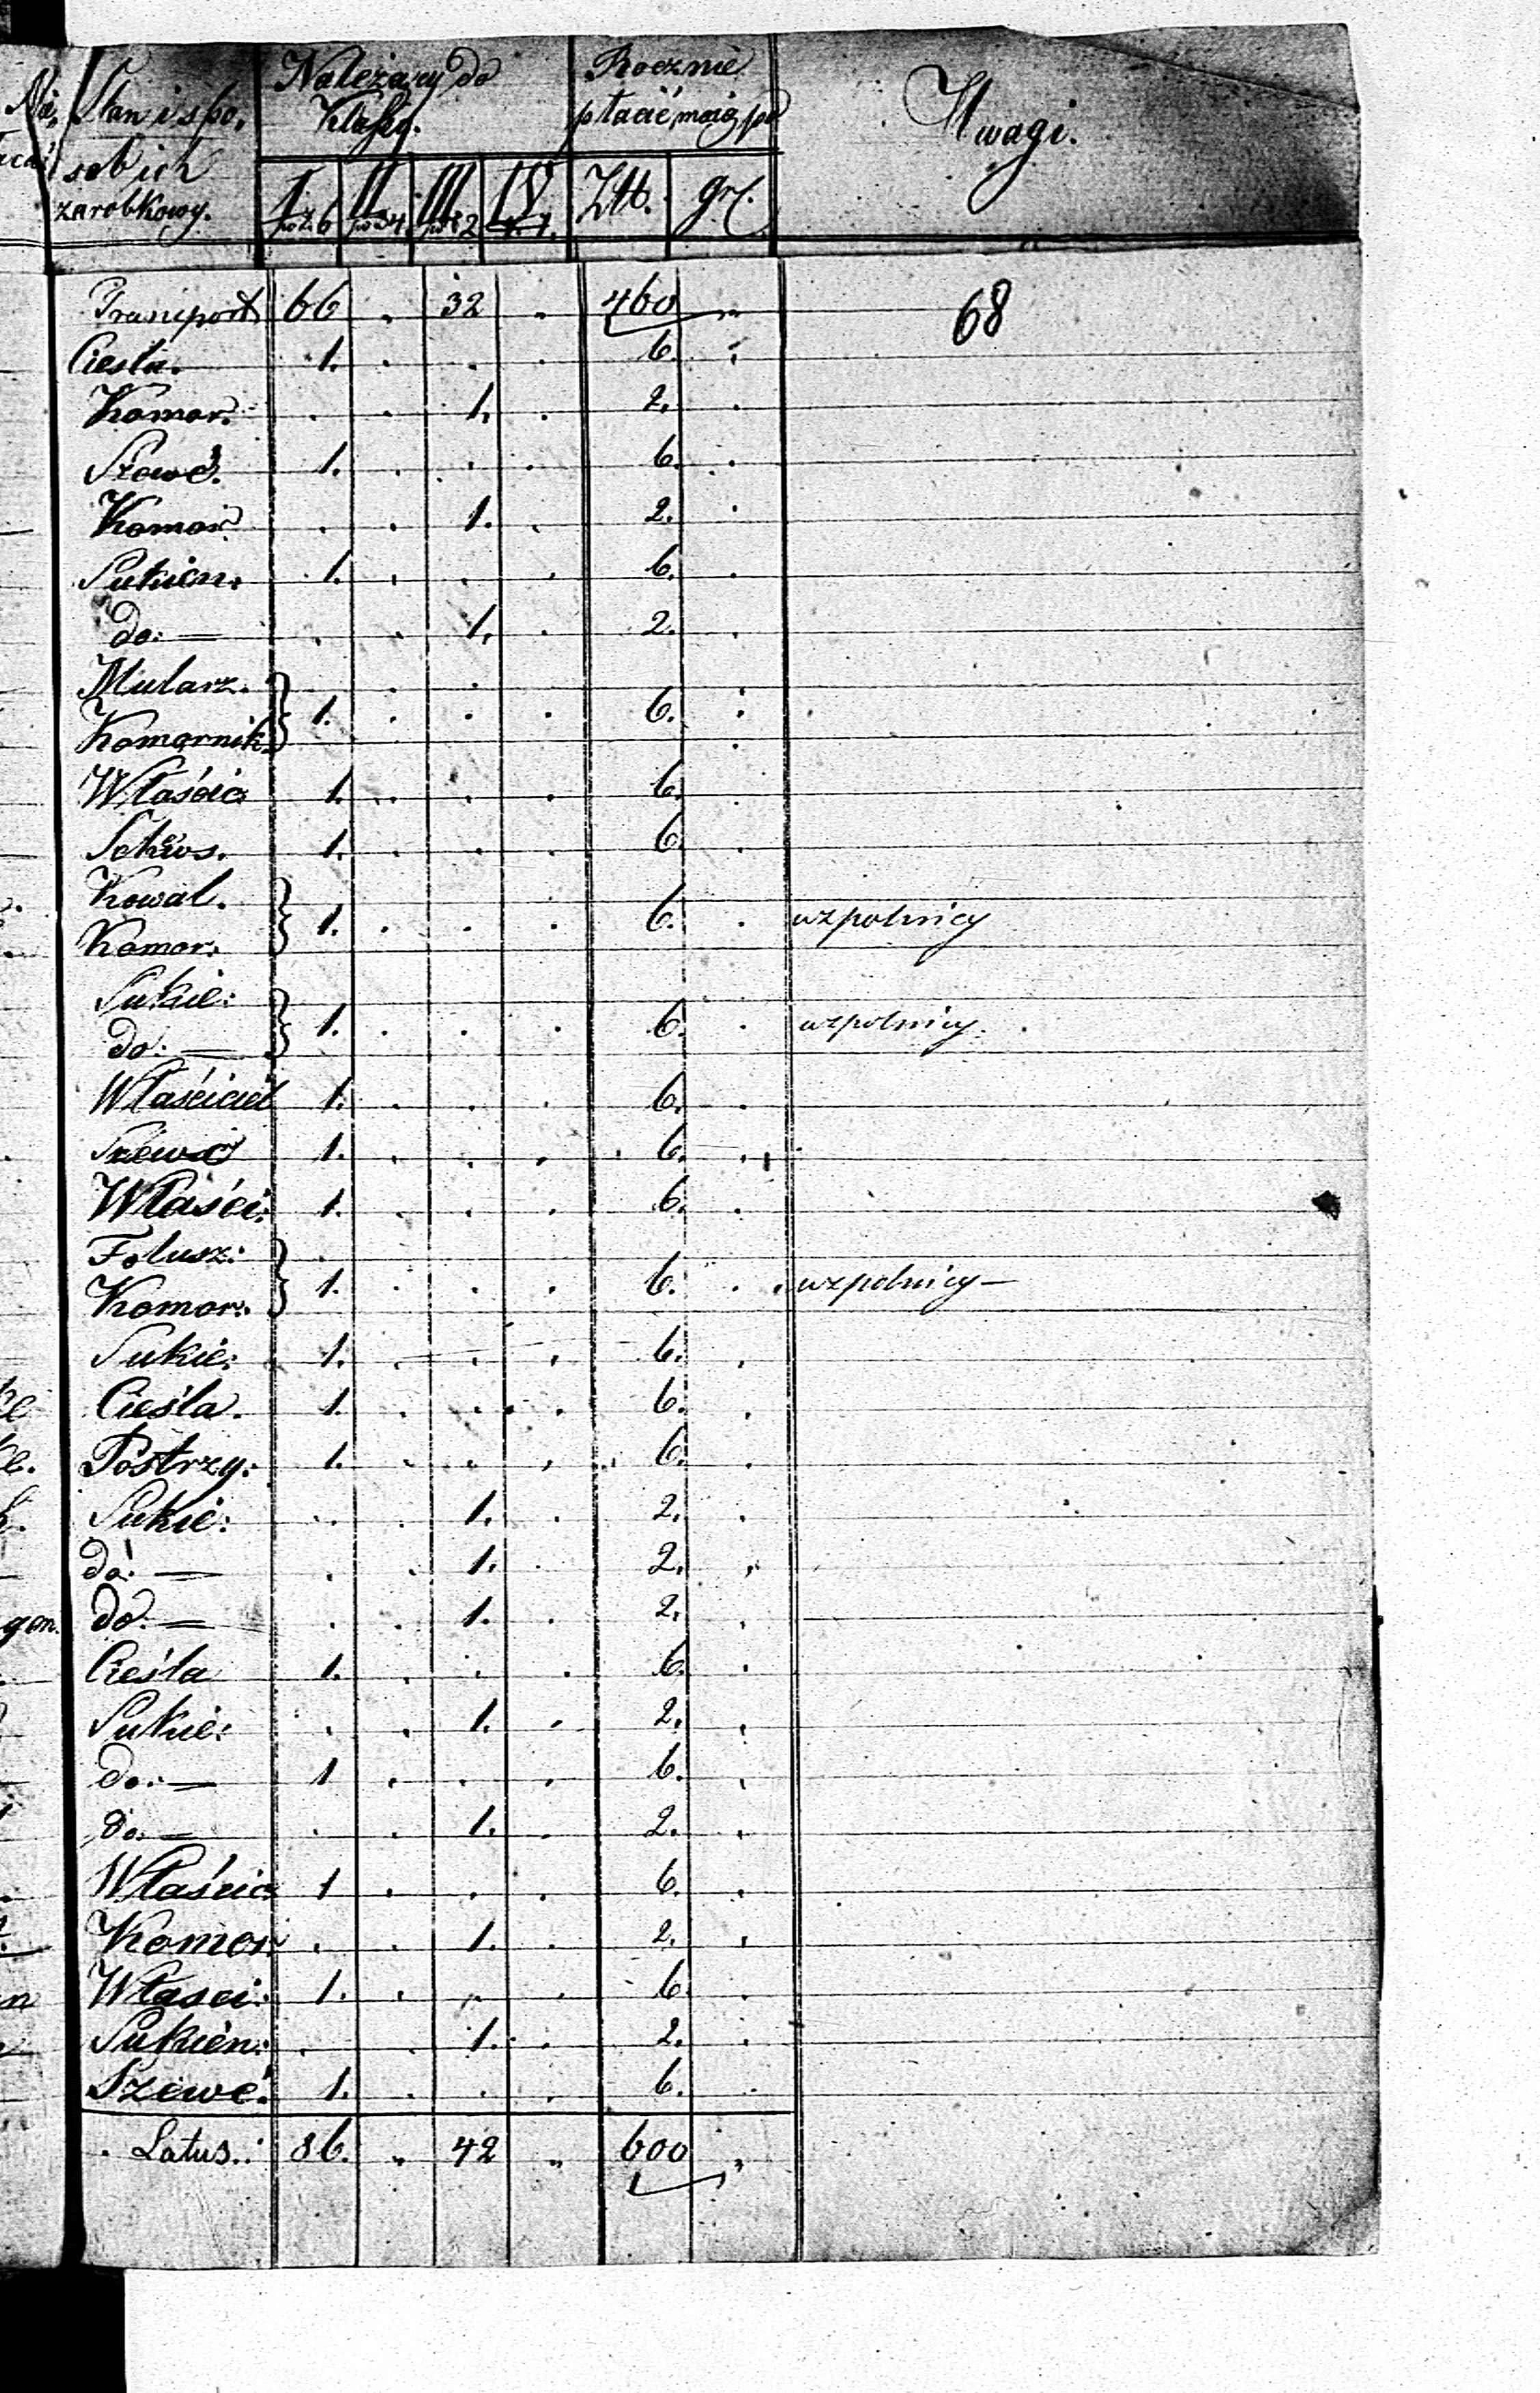 Stan i spo,
sob ich
zarobkowy.
Należący do
Klassy.
Rocznie
płacić maią po
Uwagi.
I II III IV Złt. gr.
po zł. 6 po zł 4 po zł 2 zł. 1.
Transport 66 " 32 " 460 "
68
Cieśla. 1. . . . 6. .
Komor. . . 1. . 2. .
Szewć. 1. . . . 6. .
Komor. . . 1. . 2. .
Sukien. 1. . . . 6. .
do: — . . 1. . 2. .
Mularz. } . . .
Komornik } 1. . . . 6. .
Właścic 1. . . . 6. .
1. . . . 6. .
Kowal. }
Komor: } 1. . . . 6. . wzpolnicy
Sukie: }
do: — } 1. . . . 6. . wzpolnicy.
Właściciel 1. . . . 6. .
Szewć 1. . . . 6. .
Właści: 1. . . . 6. .
Folusz: } .
Komor: } 1. . . . 6. . wzpolnicy —
Sukie: 1. . . . 6. .
Cieśla. 1. . . . 6. .
Postrzy: 1. . . . 6. .
Sukie: . . 1. . 2. .
do: — . . 1. . 2. .
do: — . . 1. . 2. .
Cieśla 1. . . . 6. .
Sukie: . . 1. . 2. .
do: — 1 . . . 6. .
do: — . . 1. . 2. .
Właścic 1 . . . 6. .
Komor: . . 1. . 2. .
Własci: 1. . . . 6. .
Sukien: . . 1. . 2. .
Szewć. 1. . . . 6. .
Latus.: 86. " 42 " 600 "